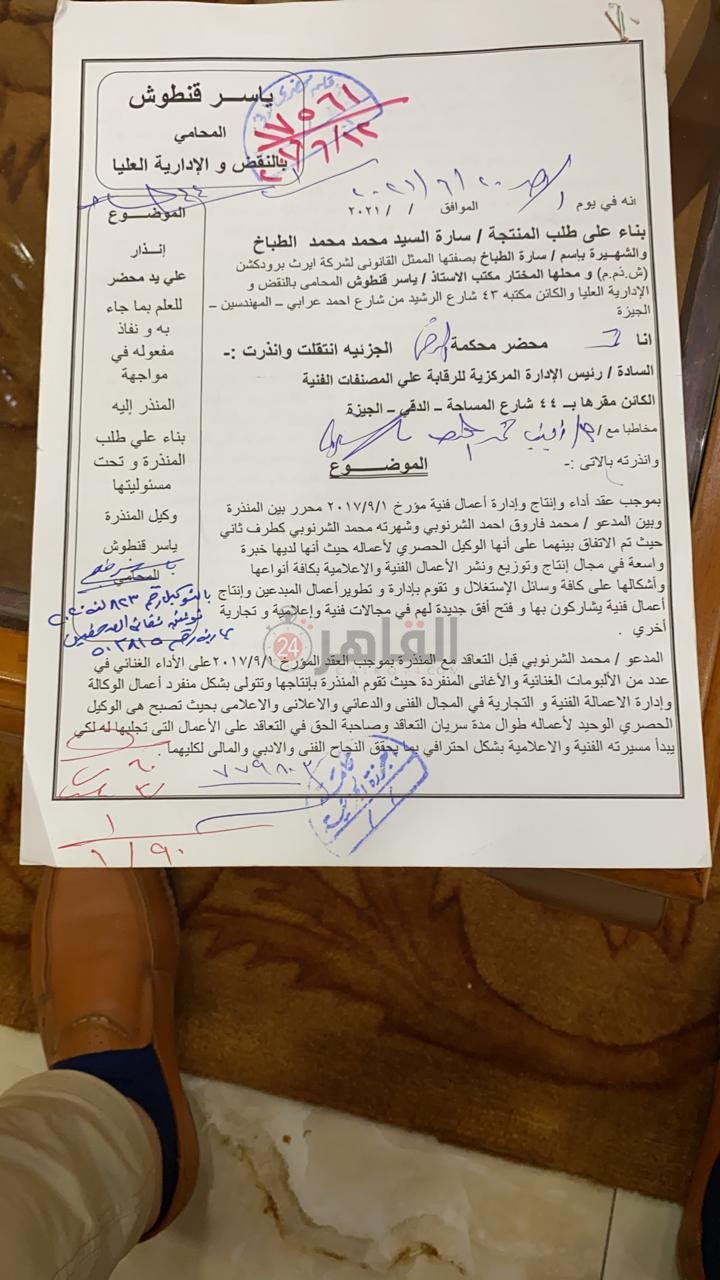 ياســـر قنطوش
المحامي
بالنقض و الإدارية العليا
١٧٥٦١
الموضـــــوع
إنــذار
علي يد محضر
للعلم بما جاء
به و نفاذ
مفعوله في
مواجهة
المنذر إليه
بناء علي طلب
المنذرة و تحت
مسئوليتها
وكيل المنذرة
ياسر قنطوش
المحامي
انه في يوم الموافق / / ٢٠٢١
بناء على طلب المنتجة / سارة السيد محمد محمد الطباخ
والشهيرة بإسم / سارة الطباخ بصفتها الممثل القانونى لشركة ايرث برودكشن
(ش.ذم.م) و محلها المختار مكتب الاستاذ / ياسر قنطوش المحامى بالنقض و
الإدارية العليا والكائن مكتبه ٤٣ شارع الرشيد من شارع احمد عرابي – المهندسين –
الجيزة
انا محضر محكمة الجزئيه انتقلت وانذرت :-
السادة / رئيس الإدارة المركزية للرقابة علي المصنفات الفنية
الكائن مقرها بــ ٤٤ شارع المساحة – الدقي – الجيزة
مخاطبا مع /
وانذرته بالاتى :-
الموضـــــوع
بموجب عقد أداء وإنتاج وإدارة أعمال فنية مؤرخ ٢٠١٧/٩/١ محرر بين المنذرة
وبين المدعو / محمد فاروق احمد الشرنوبي وشهرته محمد الشرنوبي كطرف ثاني
حيث تم الاتفاق بينهما على أنها الوكيل الحصري لأعماله حيث أنها لديها خبرة
واسعة في مجال إنتاج وتوزيع ونشر الأعمال الفنية والاعلامية بكافة أنواعها
وأشكالها على كافة وسائل الإستغلال و تقوم بإدارة و تطويرأعمال المبدعين وإنتاج
أعمال فنية يشاركون بها و فتح أفق جديدة لهم في مجالات فنية وإعلامية و تجارية
أخري .
المدعو / محمد الشرنوبي قبل التعاقد مع المنذرة بموجب العقد المؤرخ ٢٠١٧/٩/١ على الأداء الغنائي في
عدد من الألبومات الغنائية والأغانى المنفردة حيث تقوم المنذرة بإنتاجها وتتولى بشكل منفرد أعمال الوكالة
وإدارة الاعمالة الفنية و التجارية في المجال الفنى والدعائي والاعلانى والاعلامى بحيث تصبح هى الوكيل
الحصري الوحيد لأعماله طوال مدة سريان التعاقد وصاحبة الحق في التعاقد على الأعمال التى تجلبها له لكي
يبدأ مسيرته الفنية والاعلامية بشكل احترافي بما يحقق النجاح الفنى والادبي والمالى لكليهما .
القاهرة 24